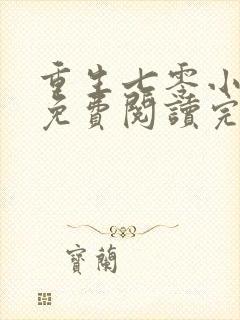 重生七零小
免費閱讀完
寶蘭